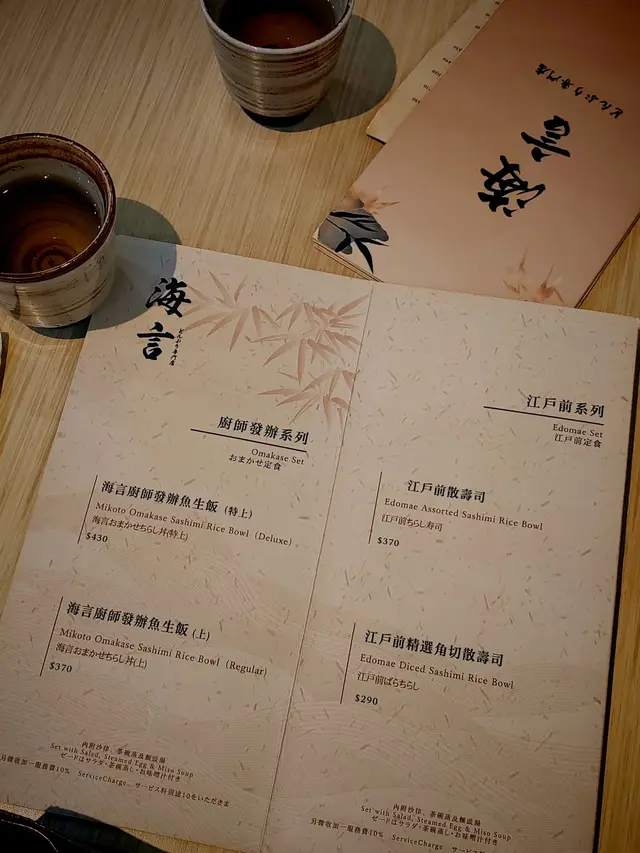 海言
どんぶり専門店
海言
どんぶり専門店
廚師發辦系列
Omakase Set
おまかせ定食
海言廚師發辦魚生飯 (特上)
Mikoto Omakase Sashimi Rice Bowl (Deluxe)
海言おまかせちらし丼(特上)
$430
海言廚師發辦魚生飯 (上)
Mikoto Omakase Sashimi Rice Bowl (Regular)
海言おまかせちらし丼(上)
$370
內附沙律、茶碗蒸及麵豉湯
Set with Salad, Steamed Egg & Miso Soup
ゼードはサラダ・茶碗蒸し・お味噌汁付き
另徵收加一服務費10% ServiceCharge、サービス料別途10をいただきま
江戶前系列
Edomae Set
江戸前定食
江戶前散壽司
Edomae Assorted Sashimi Rice Bowl
江戸前ちらし寿司
$370
江戶前精選角切散壽司
Edomae Diced Sashimi Rice Bowl
江戸前ばらちらし
$290
內附沙律、茶碗蒸及麵豉湯
Set with Salad, Steamed Egg & Miso Soup
ゼードはサラダ・茶碗蒸し・お味噌汁付き
另徵收加一服務費10% ServiceCharge、サービス料別途10をいただきま